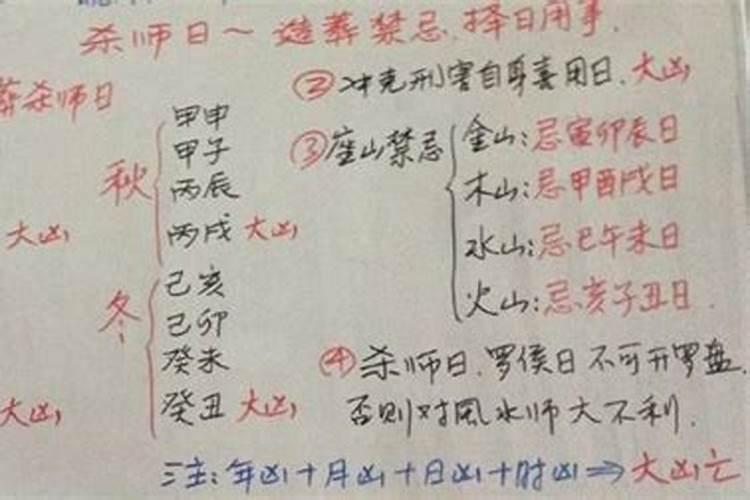 杀师日～造葬禁忌.择日用事.
葬杀师日
秋
甲申
甲子
丙辰
丙戌 大凶
大凶
冬
己亥
己卯
癸未
癸丑 大凶
大凶
②冲克刑害自身喜用日.大凶
③座山禁忌
金山:忌寅卯辰日
木山:忌甲酉戌日
水山:忌巳午未日
火山:忌亥子丑日.
④杀师日.罗侯日不可开罗盘.
否则对風水师大不利.
注:年凶+月凶+日凶+时凶⇒大凶亡